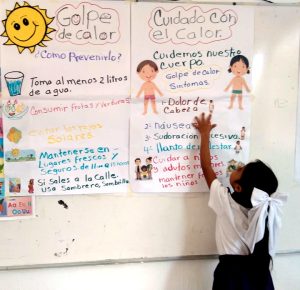 Golpe
de calor
¿Como Prevenirlo?
Toma al menos 2 litros
de agua.
Consumir frutas/Verduras
Evitar los rayos
Solares
Mantenerse en
Lugares frescos y
Seguros de
Si Sales a la Calle
usa Sombrero, Sombrilla
Cuidado con
el Calor.
Cuidemos nuestro
Cuerpo.
Golpe de Calor
Sintomas.
1- Dolor de
Cabeza
2- Náuseas
3- Sudoración
4- llanto
Cuidar a
adultos
mantener frescos
los niños
Aa Ee